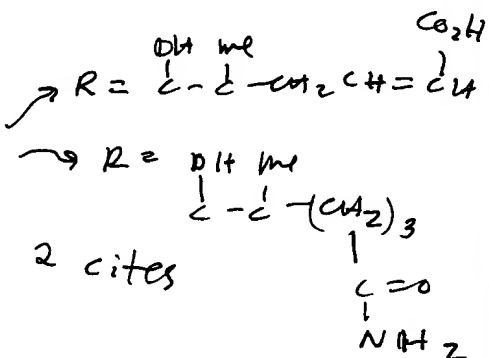 CO₂H
OH me
R = C - C - CH₂ CH = CH
R = OH me
C - C - (CH₂)₃
2 cites
C = O
NH₂